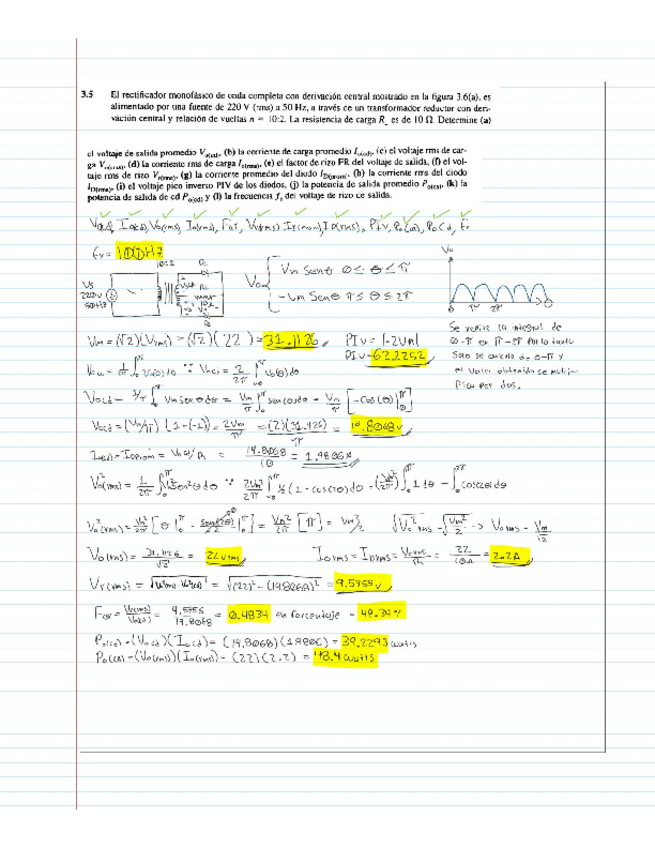 3.5 El rectificador monofásico de onda completa con derivación central mostrado en la figura 3.6(a), es
alimentado por una fuente de 220 V (rms) a 50 Hz, a través de un transformador reductor con deri-
vación central y relación de vueltas n = 10:2. La resistencia de carga R es de 10 Ω. Determine (a)
el voltaje de salida promedio Vo(cd), (b) la corriente de carga promedio Io(cd), (c) el voltaje rms de car-
ga Vo(rms), (d) la corriente rms de carga Io(rms), (e) el factor de rizo FR del voltaje de salida, (f) el vol-
taje rms de rizo Vr(rms), (g) la corriente promedio del diodo ID(prom), (h) la corriente rms del diodo
ID(rms), (i) el voltaje pico inverso PIV de los diodos, (j) la potencia de salida promedio Po(ca), (k) la
potencia de salida de cd Po(cd) y (l) la frecuencia fr del voltaje de rizo de salida.
Vo(cd), Io(cd), Vo(rms), Io(rms), Fcr, Vr(rms), ID(rms), PIV, Po(ca), Po cd, Fr
Fr = 100Hz
10:2
Vs
220V
50Hz
Vo { Vm Senθ 0 ≤ θ ≤ π
-Vm Senθ π ≤ θ ≤ 2π
Vo
π 2π
Se repite la integral de
0-π en π-2π Por lo tanto
Solo se calcula de 0-π y
el valor obtenido se multi-
plica por dos.
Vm = (√2)(Vrms) = (√2)(22) = 31.1126
PIV = |-2Vm|
PIV = 62.2252
= Vm/π ∫ senθ dθ = Vm/π [-Cos(θ)|]
Vocd = (Vm/π)(1-(-1)) = 2Vm/π = (2)(31.126)/π = 19.8068v
Io(cd) = IDprom = Vocd/R = 19.8068/10 = 1.9806A
V²o(rms) = 1/2π ∫ V²mSen²θ dθ ∵ 2Vm²/2π ∫ ½(1-cos(2θ))dθ = (Vm²/2π) ∫ 1dθ - ∫ cos2θ dθ
V²o(rms) = Vm²/2π [θ| - sen(2θ)/2|] = Vm²/2π [π] = Vm²/2 √V²o rms = √Vm²/2 -> Vo rms = Vm/√2
Vo(rms) = 31.1126/√2 = 22vrms Iorms = IDrms = Vorms/R = 22/10Ω = 2.2A
Vr(rms) = √V²orms - V²o(cd) = √(22)² - (19.8068)² = 9.5755v
Fcr = Vr(rms)/Vo(cd) = 9.5755/19.8068 = 0.4834 en Porcentaje = 48.34%
Po(cd) = (Vocd)(Iocd) = (19.8068)(1.9806) = 39.2293 watts
Po(ca) = (Vo(rms))(Io(rms)) = (22)(2.2) = 48.4 watts